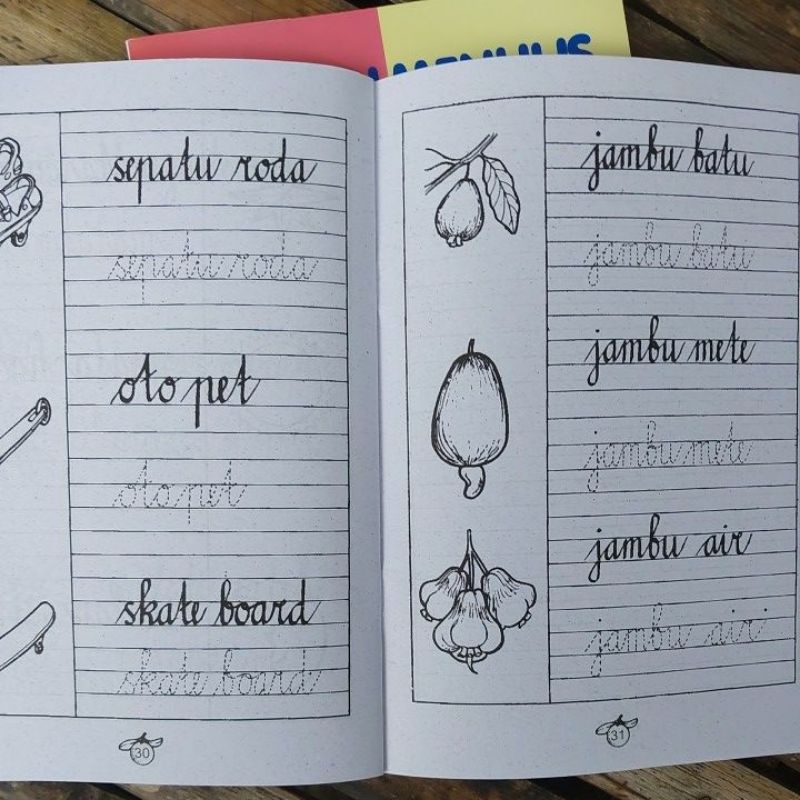 MENULIS
sepatu roda
sepatu roda
oto pet
oto pet
skate board
skate board
30
jambu batu
jambu batu
jambu mete
jambu mete
jambu air
jambu airi
31